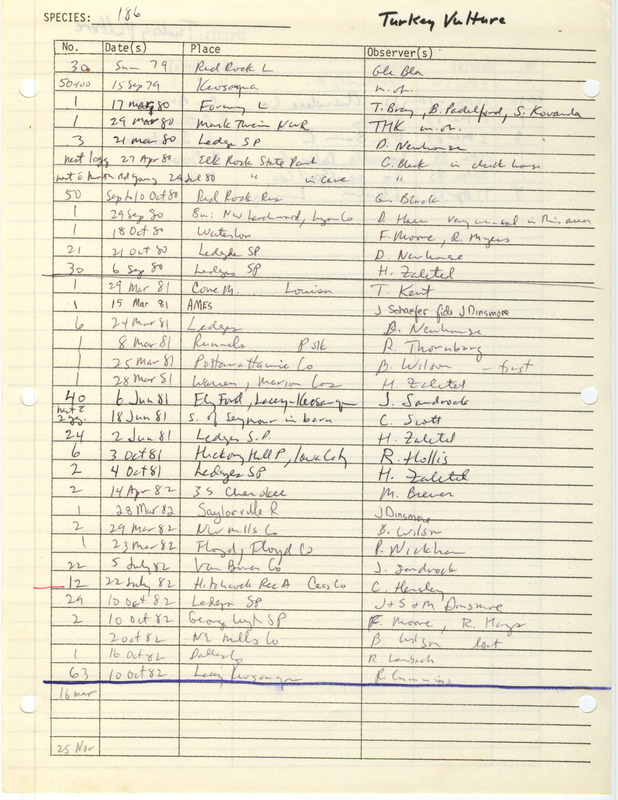 SPECIES: 186 Turkey Vulture
No. Date(s) Place Observer(s)
30 Sum 79 Red Rock L Gle Bla
50-100 15 Sep 79 Keosauqua m.ob.
1 17 Mar 80 L T. Bray, B. Padelford, S. Kovanda
1 29 Mar 80 Mark Twain NWR THK m.ob.
3 21 Mar 80 Ledges SP D. Newhouse
27 Apr 80 Elk Rock State Park G. Black in
80 " in cave "
50 10 Oct 80 Red Rock Res Black
1 29 Sep 80 Lyon Co very unusual in this area
1 18 Oct 80 Waterloo F. Moore, R. Myers
21 21 Oct 80 Ledges SP D. Newhouse
30 6 Sep 80 Ledges SP H. Zaletel
1 29 Mar 81 Cone M. Louisa T. Kent
1 15 Mar 81 AMES J Schaefer fide J Dinsmore
6 24 Mar 81 Ledges D. Newhouse
1 8 Mar 81 Runnels Polk R. Thornburg
1 25 Mar 81 Pottawattamie Co B. Wilson - first
1 28 Mar 81 Warren, Marion Cos H. Zaletel
40 6 Jun 81 Ely Ford, Lacey-Keosauqua J. Sandrock
18 Jun 81 S. of Seymour in barn C. Scott
24 2 Jun 81 Ledges S.P. H. Zaletel
6 3 Oct 81 Hickory Hill P, Iowa City R. Hollis
2 4 Oct 81 Ledges SP H. Zaletel
2 14 Apr 82 3 S Cherokee M. Brewer
1 28 Mar 82 Saylorville R J Dinsmore
2 29 Mar 82 NW Mills Co B. Wilson
1 23 Mar 82 Floyd, Floyd Co P. Wickham
22 5 July 82 Van Buren Co J. Sandrock
12 22 July 82 Hitchcock Rec A Cass Co C. Hensley
29 10 Oct 82 Ledges SP J + S + M Dinsmore
2 10 Oct 82 George Wyth SP F. Moore, R. Myers
2 Oct 82 NE Mills Co B Wilson last
1 16 Oct 82 Dallas Co R.
63 10 Oct 82 Lacey Keosauqua R. Cummins
16 mar
25 Nov